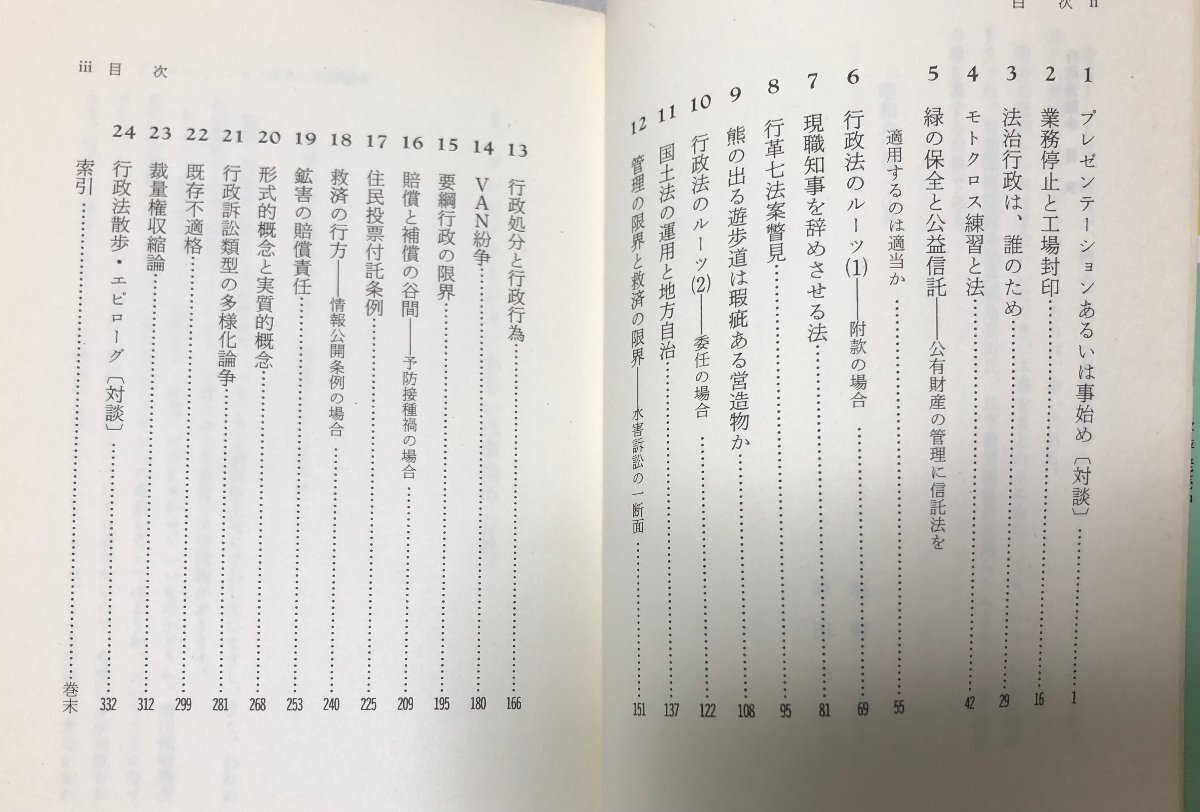 目 次 ii
1 プレゼンテーションあるいは事始め〔対談〕……1
2 業務停止と工場封印……16
3 法治行政は、誰のため……29
4 モトクロス練習と法……42
5 緑の保全と公益信託――公有財産の管理に信託法を
適用するのは適当か……55
6 行政法のルーツ(1)――附款の場合……69
7 現職知事を辞めさせる法……81
8 行革七法案瞥見……95
9 熊の出る遊歩道は瑕疵ある営造物か……108
10 行政法のルーツ(2)――委任の場合……122
11 国土法の運用と地方自治……137
12 管理の限界と救済の限界――水害訴訟の一断面……151
iii 目 次
13 行政処分と行政行為……166
14 VAN紛争……180
15 要綱行政の限界……195
16 賠償と補償の谷間――予防接種禍の場合……209
17 住民投票付託条例……225
18 救済の行方――情報公開条例の場合……240
19 鉱害の賠償責任……253
20 形式的概念と実質的概念……268
21 行政訴訟類型の多様化論争……281
22 既存不適格……299
23 裁量権収縮論……312
24 行政法散歩・エピローグ〔対談〕……332
索引……巻末